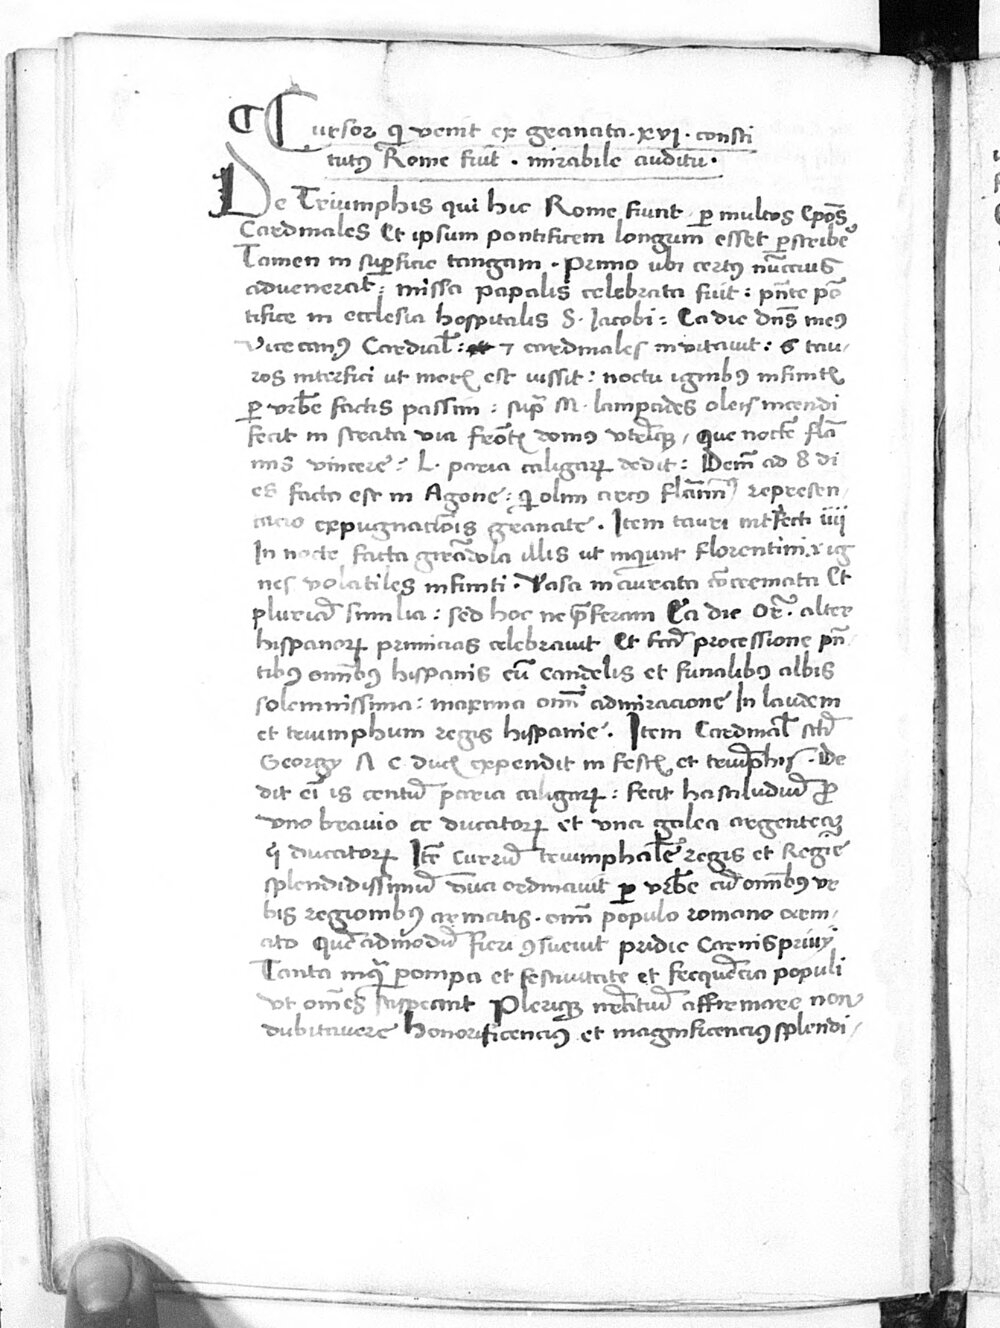 Cursor q̄ venit ex granata · xvi · consti
tutꝰ Rome fuit · mirabile auditu ·
De Triumphis qui hic Rome fiunt ꝑ multos Ep̄os
Cardinales Et ipsum pontificem longum esset ꝑscribeʳ
Tamen in suꝑficie tangam · Primo ubi certꝰ nūccius
advenerat : missa papalis celebrata fuit : pn̄te pō
tifice in ecclesia hospitalis S · Jacobi : Ea die dn̄s meꝰ
Vicecanꝰ Cardiāl : ⁊ cardinales invitavit : 6 tau/
ros interfici ut moris est iussit : noctu ignibꝰ infinitis
ꝑ vrbē factis passim : supͣ M · lampades oleis incendi
fecit in strata via frōtis domꝰ utriusqꝫ / Que nocte flā
mis vincere : L · paria caligaꝝ dedit : Dem̄ ad 8 di
es facta est in Agone : q̄ olim circꝰ flāmꝰ represen/
tacio expugnaciōis granate · Item tauri int̄fecti iiii
In nocte facta girādola illis ut inquiunt florentini · ig
nes volatiles infiniti · Vasa incurata cōcremata Et
pluriā similia : sed hoc ne p̄feram Ea die alter
hispanoꝝ primicias celebravit Et processione pn̄
tibꝰ omībꝰ hispanis cū candelis et funalibꝰ albis
solemnissima : maxima om̄ admiracione In laudem
et triumphum regis hispanie · Item Cardināl sc̄ti
Georgij expendit in festis et triūphis · De
dit eī is centū paria caligaꝝ : fecit hastiludiū ꝓ
uno bravio ducatoꝝ et una galea argentea
ducatoꝝ Itē Currū triumphalē regis et Regie
splendidissimū ordinavit ꝑ vrbē cū omībꝰ vr
bis regionibꝰ armatis · om̄i populo romano arm/
ato quēadmodū fieri ꝯsuevit pridie Carnispriuij
Tanta inqͣ pompa et festivitate et freqūcia populi
ut om̄es Plerique affirmare non
dubitavere honorificencius et magnificencius splendi/